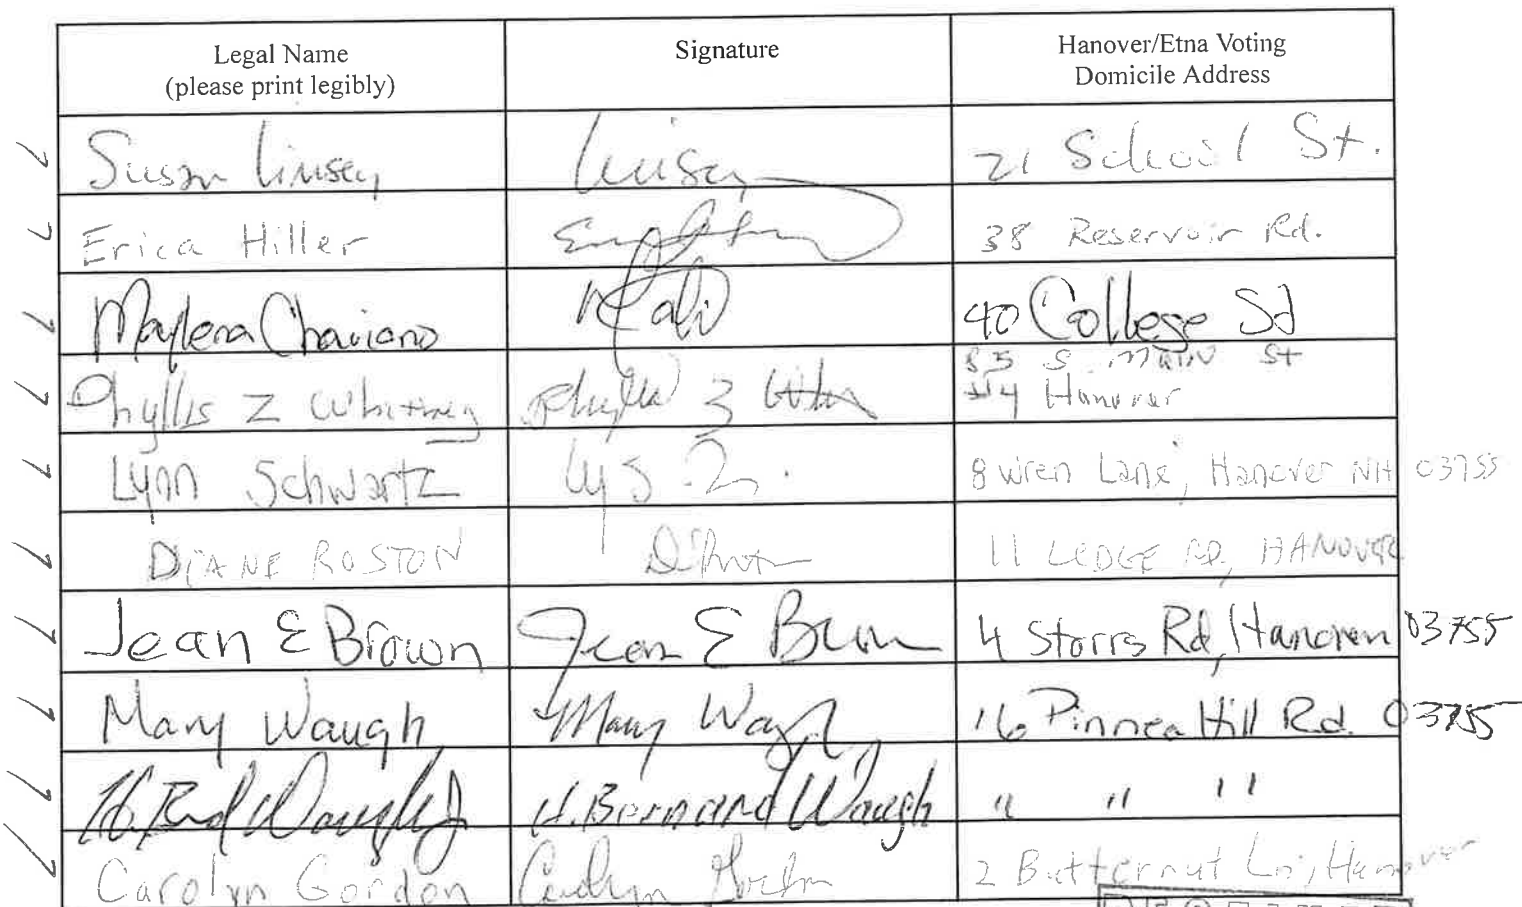 Legal Name
(please print legibly)
Signature
Hanover/Etna Voting
Domicile Address
Susan Linsey Linsey 21 School St.
Erica Hiller 38 Reservoir Rd.
Maylena Chaviano 40 College St
Phyllis Z Whitney Phyllis Z 85 S. Main St
#4 Hanover
Lynn Schwartz 8 Wren Lane, Hanover NH 03755
DIANE ROSTON 11 LEDGE RD, HANOVER
Jean E Brown Jean E Brown 4 Storrs Rd, Hanover 03755
Mary Waugh Mary Waugh 16 Pinnea Hill Rd. 03755
H. Waugh Jr H. Bernard Waugh " " "
Carolyn Gordon Carolyn Gordon 2 Butternut Ln, Hanover